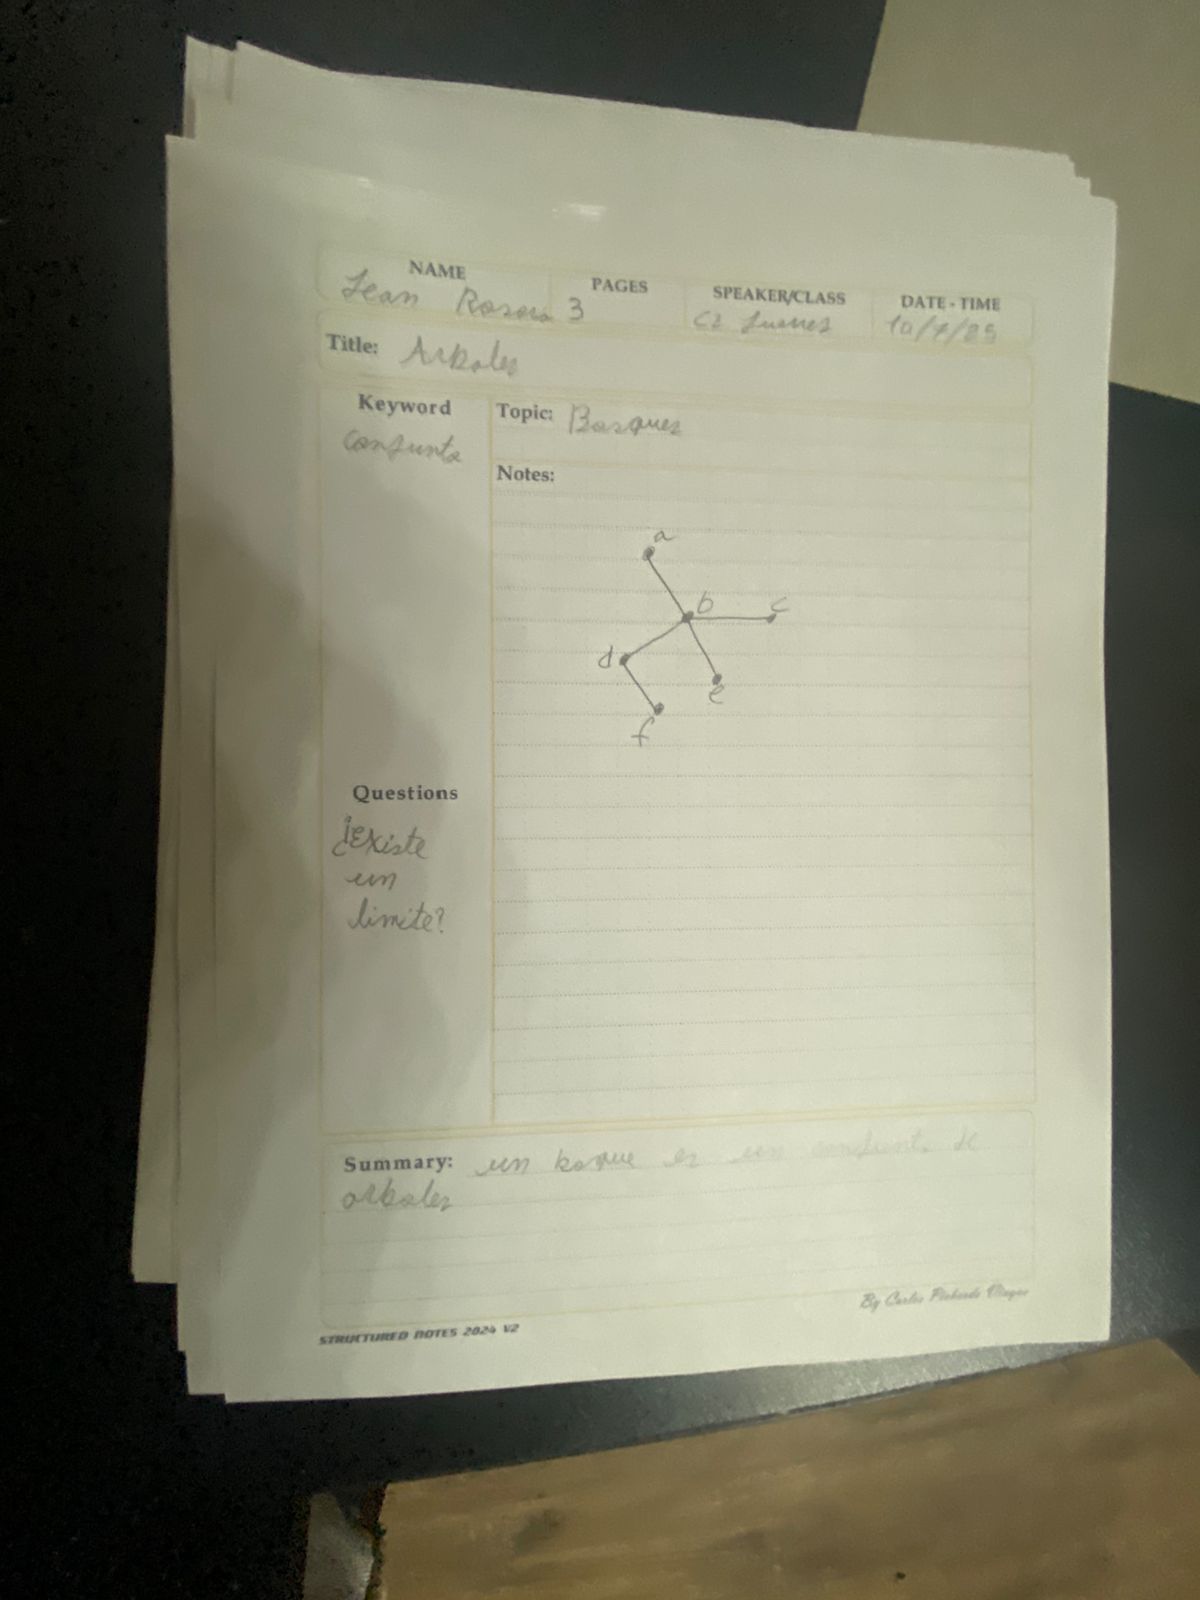 NAME PAGES SPEAKER/CLASS DATE - TIME
Jean 3 10/7/25
Title: Arboles
Keyword
conjunto
Topic: Bosques
Notes:
a
b c
d
e
f
Questions
¿existe
un
limite?
Summary: un bosque es un conjunto de
arboles
By Carlos Pichardo
STRUCTURED NOTES 2024 V2